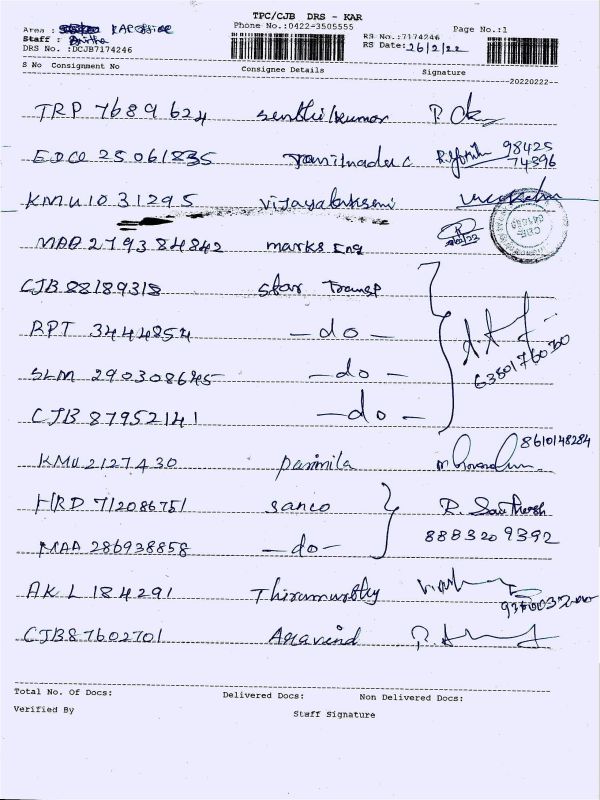 TPC/CJB DRS - KAR
Area : KAR OFFICE Phone No.:0422-3505555 Page No.:1
Staff : RS No.:7174246
DRS No. :DCJB7174246 RS Date: 26/2/22
S No Consignment No Consignee Details Signature
--20220222--
TRP 7689624 Senthilkumar
EDCO 25061835 Tamilnadu C 98425
74396
KMU1031295 Vijayalakshmi
MAA 279384842 marks Eng
CJB 88189318 Star Transp
RPT 3444854 - do -
SLM 290308645 - do - 6380176030
CJB 87952141 - do -
KMU2127430 Parimila 8610148284
HRD 712086751 Sanco R. Santhosh
MAA 286938858 - do - 888320 9392
AKL 184291 Thirumurthy
CJB87602701 Aravind
Total No. Of Docs: Delivered Docs: Non Delivered Docs:
Verified By Staff Signature